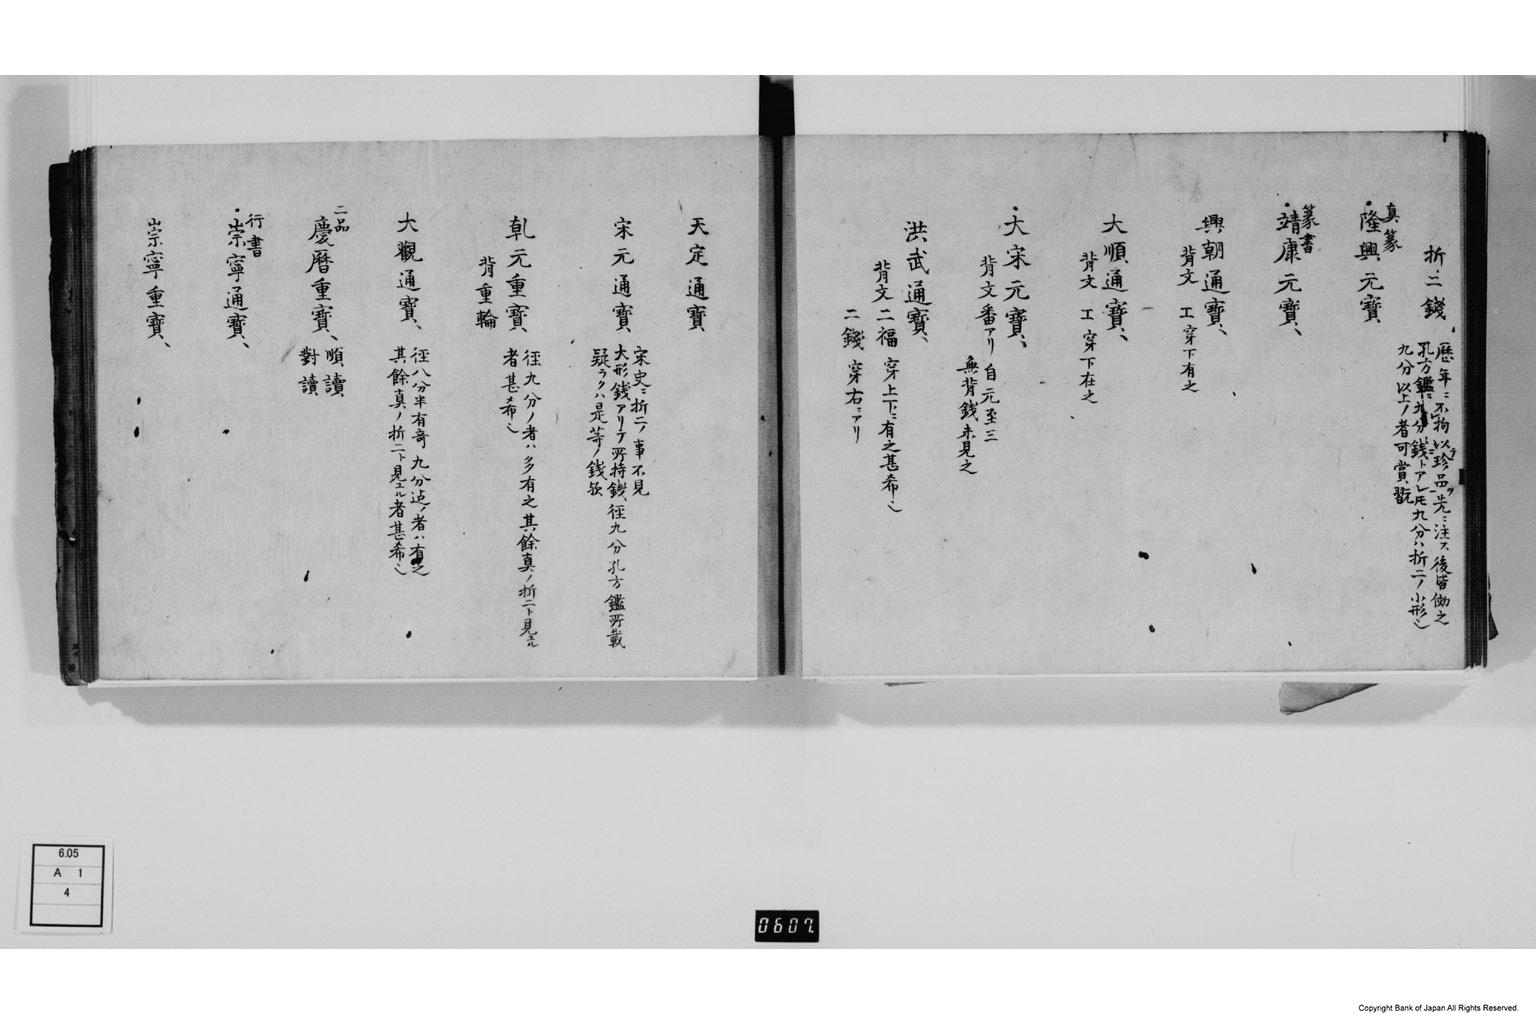 折二錢
歴年ニ不拘以珍品先ニ注ス後皆倣之
孔方鑑ニ九分錢トアレ𪜈九分ハ折二ノ小形也
九分以上ノ者可賞翫
真篆
隆興元寳
篆書
靖康元寳、
興朝通寳、
背文 工 穿下有之
大順通寳、
背文 工 穿下在之
大宋元寳、
背文番アリ自元至三
無背錢未見之
洪武通寳、
背文 二福 穿上下ニ有之甚希也
二錢 穿右ニアリ
天定通寳
宋元通寳、
宋史ニ折二ノ事不見
大形銭アリテ所持銭、径九分孔方鑑所載
疑ラクハ是等ノ銭欤
乹元重寳、
径九分ノ者ハ多有之其餘真ノ折二ト見エル
者甚希也
背重輪
大觀通寳、
径八分半有奇九分迠ノ者ハ有之
其餘真ノ折二ト見エル者甚希也
二品
慶曆重寳、
順讀
對讀
行書
崇寧通寳、
崇寧重寳、
6.05
A 1
4
0607
Copyright Bank of Japan All Rights Reserved.